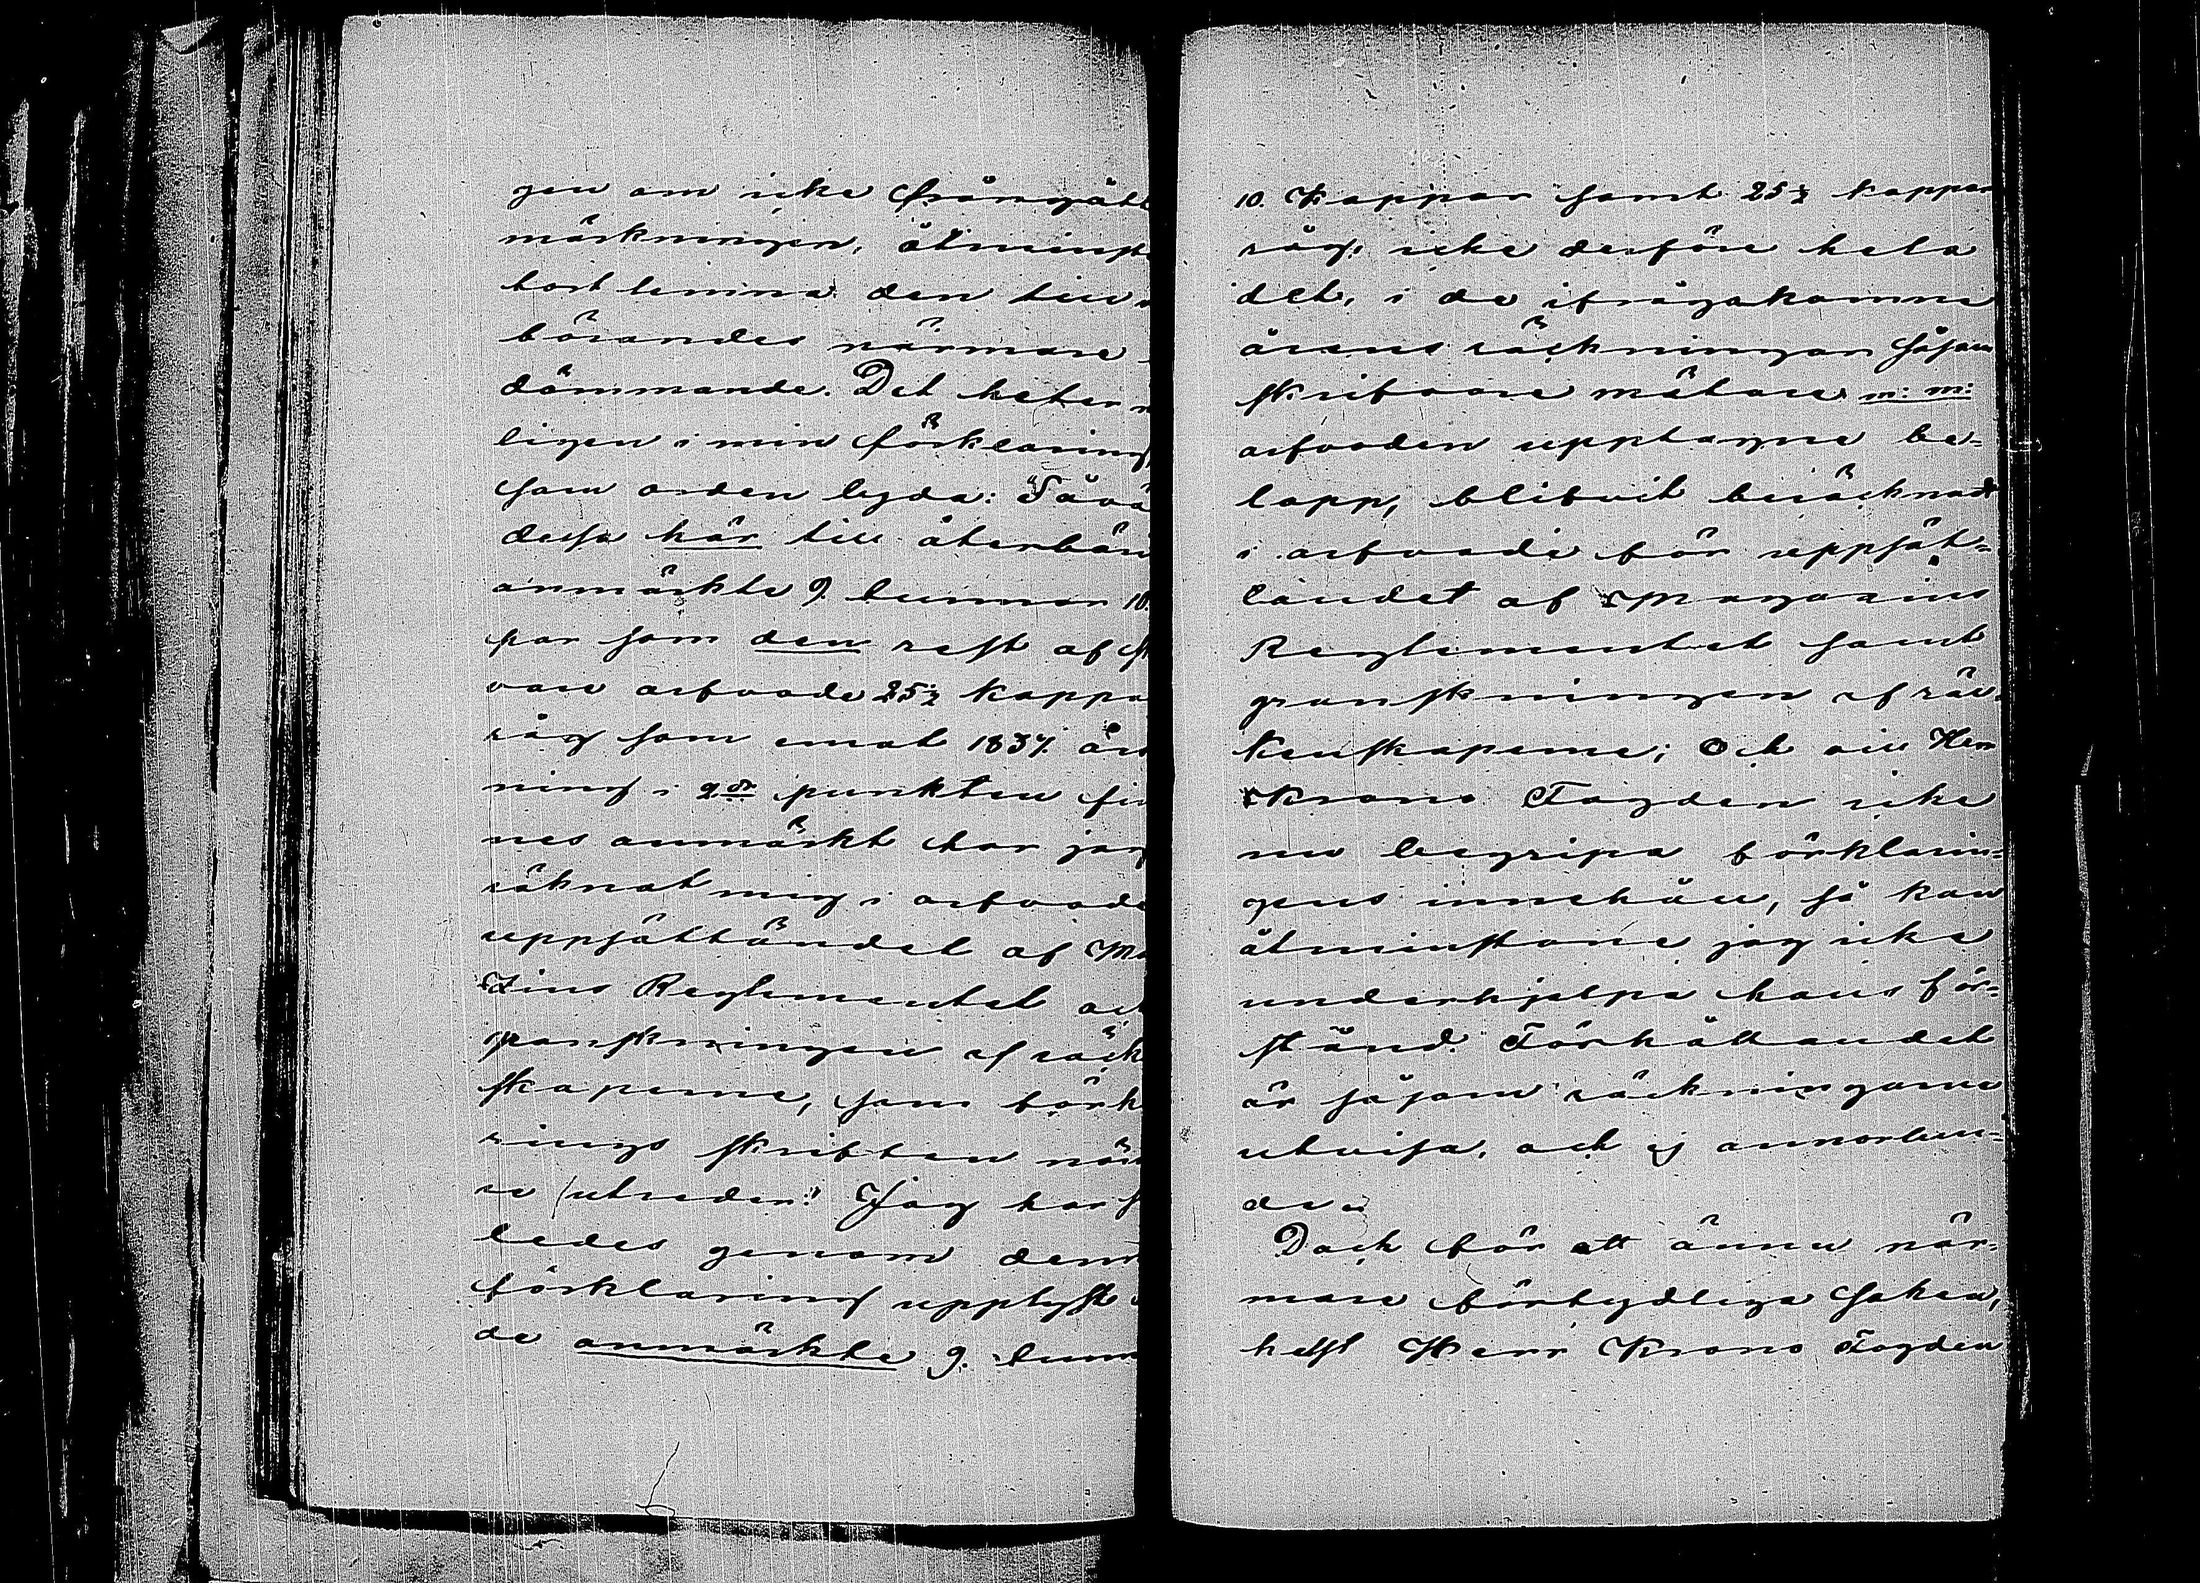 gen om icke frångått
märkningen, åtminst
tort lemna den till
börandes närmare
dömmande. Det heter
ligen i min förklaring
som orden lyda: Tåra
dessa här till återbäri
anmärkte 9 tunnor 10.
par som den rest af
vare arfvode 25½ kappa
råg som emot 1837 års
ning i 2dr punkten fin
nes anmärkt har jag
räknat mig i arfvode
uppsättandet af Ma
zins Reglementet och
granskningen af räck
skaperne, som förkla
rings skriften närm
re utreder." Jag har så
ledes genom denn
förklaring upplyst
de anmärkte 9. tunn
10. Kappar samt 25½ kappar
råg, icke derföre hela
det, i de ifrågakomne
årens räckningar såsom
skrifvare mätare m: m:
arfvoden upptagne be-
lopp, blifvit beräcknadt
i arfvode för uppsät-
tandet af Magazins
Reglementet samt
granskningen af räc
kenskaperne; Och vill Herr
Krono Fogden icke
nu begripa förklarin-
gens innehåll, så kan
åtminstone jag icke
underhjelpa hans för-
stånd. Förhållandet
är såsom räckningarne
utvisa, och ej annorlun-
da.
Dock för att ännu när-
mare förtydliga saken,
helst Herr Krono Fogden